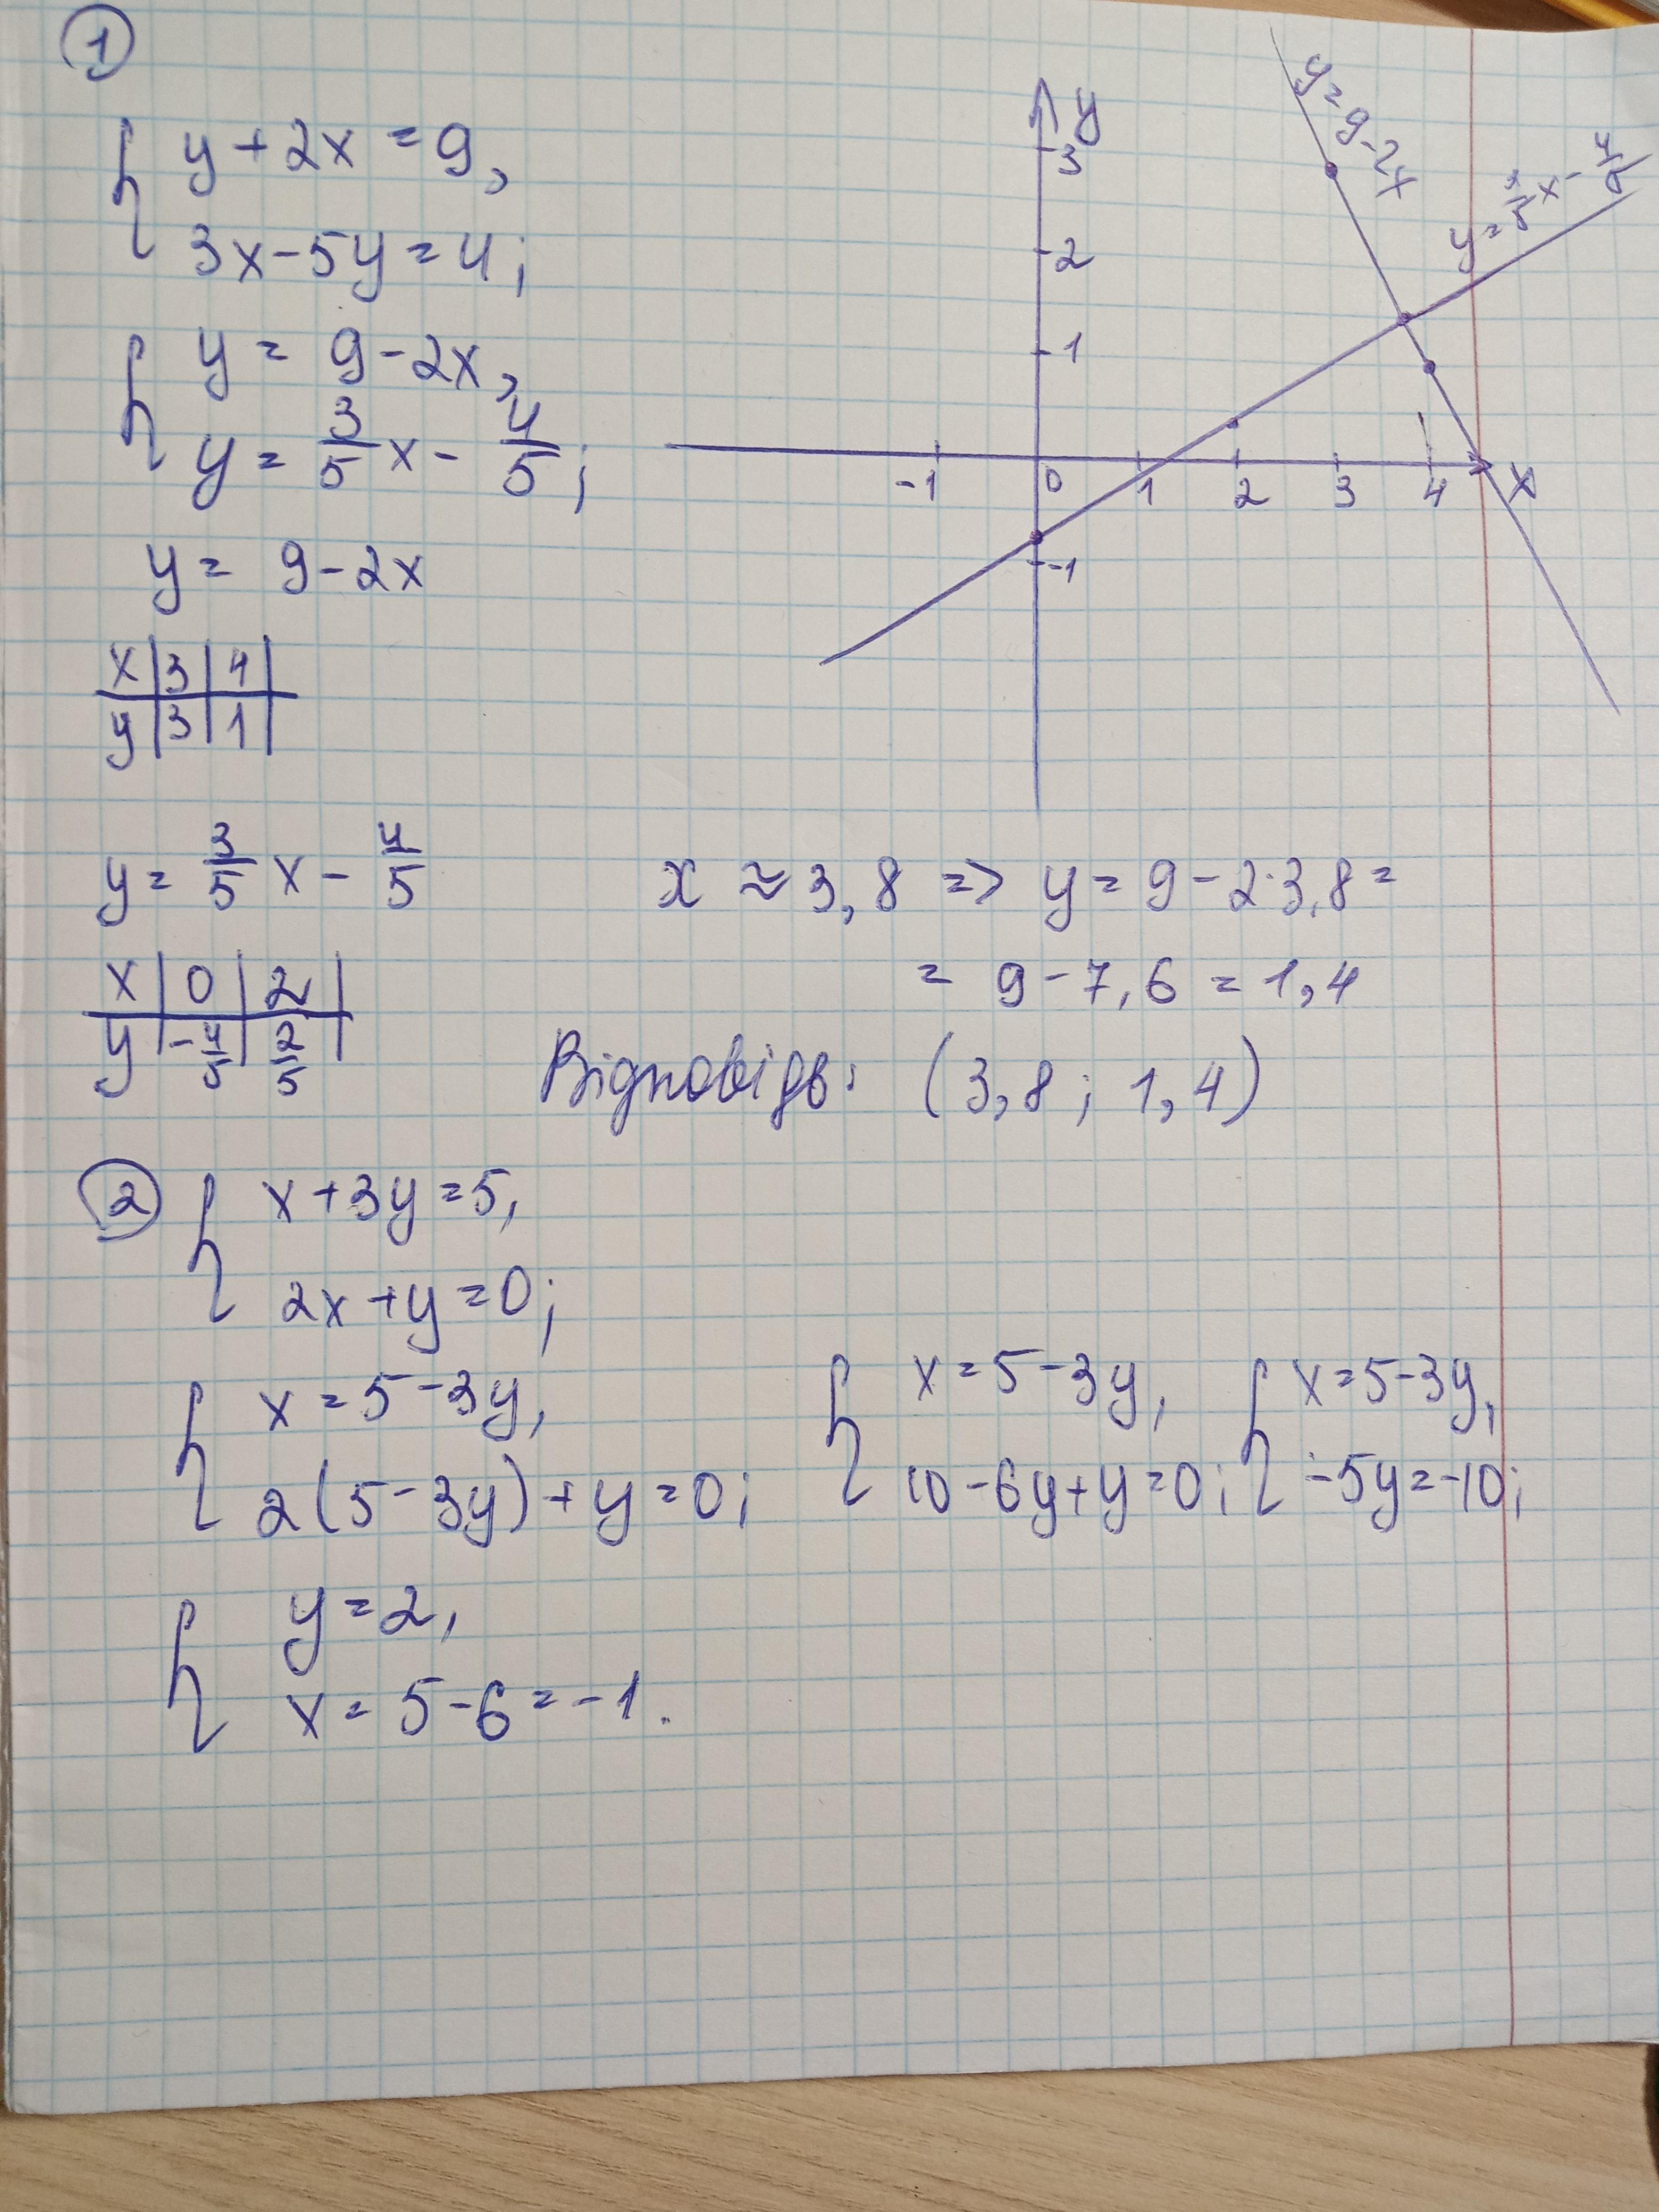 1
y + 2x = 9,
3x - 5y = 4;
y = 9 - 2x,
y = 3/5 x - 4/5;
y = 9 - 2x
x | 3 | 4 |
y | 3 | 1 |
y = 3/5 x - 4/5
x | 0 | 2 |
y | -4/5 | 2/5 |
y
3
2
1
-1 0 1 2 3 4 x
-1
y = 9 - 2x
y = 3/5 x - 4/5
x ≈ 3,8 => y = 9 - 2·3,8 =
= 9 - 7,6 = 1,4
Відповідь: (3,8 ; 1,4)
2
x + 3y = 5,
2x + y = 0;
x = 5 - 3y,
2(5 - 3y) + y = 0;
x = 5 - 3y,
10 - 6y + y = 0;
x = 5 - 3y,
-5y = -10;
y = 2,
x = 5 - 6 = -1.